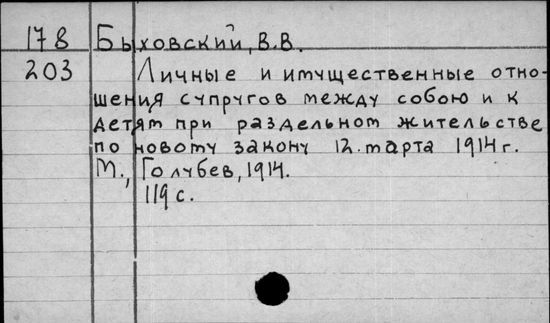 178 Быховский, В.В.
203 Личные и имущественные отно-
шения супругов между собою и к
детям при раздельном жительстве
по новому закону 12. марта 1914 г.
М., Голубев, 1914.
119 с.